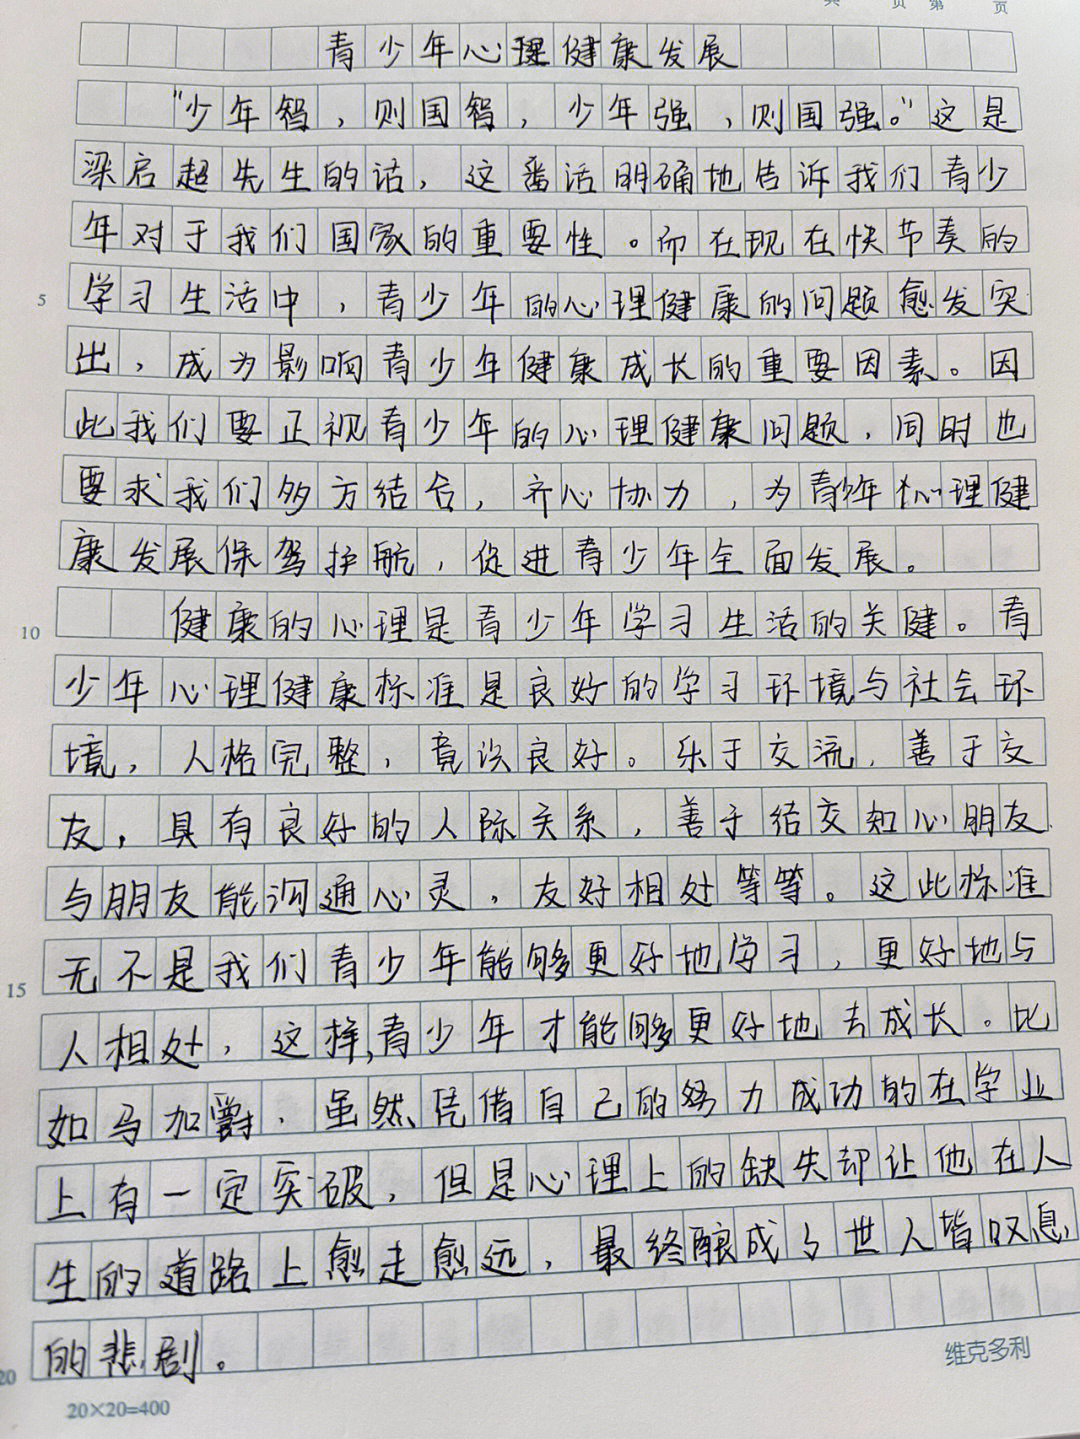 共 页 第 页
青少年心理健康发展
“少年智，则国智，少年强，则国强。”这是
梁启超先生的话，这番话明确地告诉我们青少
年对于我们国家的重要性。而在现在快节奏的
5 学习生活中，青少年的心理健康的问题愈发突
出，成为影响青少年健康成长的重要因素。因
此我们要正视青少年的心理健康问题，同时也
要求我们多方结合，齐心协力，为青少年心理健
康发展保驾护航，促进青少年全面发展。
10 健康的心理是青少年学习生活的关健。青
少年心理健康标准是良好的学习环境与社会环
境，人格完整，竟识良好。乐于交流，善于交
友，具有良好的人际关系，善于结交知心朋友
与朋友能沟通心灵，友好相处等等。这此标准
15 无不是我们青少年能够更好地学习，更好地与
人相处，这样，青少年才能够更好地去成长。比
如马加爵，虽然凭借自己的努力成功的在学业
上有一定突破，但是心理上的缺失却让他在人
生的道路上愈走愈远，最终酿成了世人皆叹息
20 的悲剧。
维克多利
20×20=400